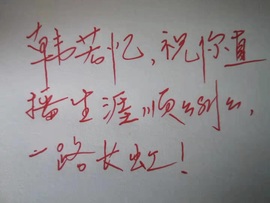 韩若忆,祝你直
播生涯顺顺利利,
一路长虹!